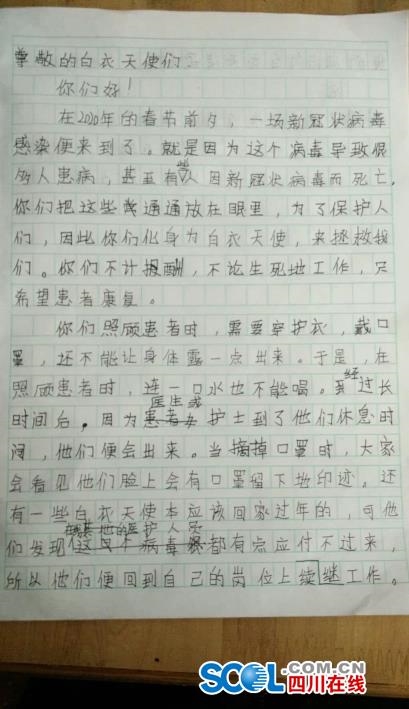 尊敬的白衣天使们：
你们好！
在2020年的春节前夕，一场新冠状病毒
感染便来到了。就是因为这个病毒导致很
多人患病，甚至有些人因新冠状病毒而死亡。
你们把这些通通放在眼里，为了保护人
们，因此你们化身为白衣天使，来拯救我
们。你们不计报酬，不论生死地工作，只
希望患者康复。
你们照顾患者时，需要穿护衣，戴口
罩，还不能让身体露一点出来。于是，在
照顾患者时，连一口水也不能喝。经过长
时间后，因为医生或护士到了他们休息时
间，他们便会出来。当摘掉口罩时，大家
会看见他们脸上会有口罩留下地印迹。还
有一些白衣天使本应该回家过年的，可他
们发现其他的医护人员都有点应付不过来，
所以他们便回到自己的岗位上续继工作。
SCOL.COM.CN
四川在线